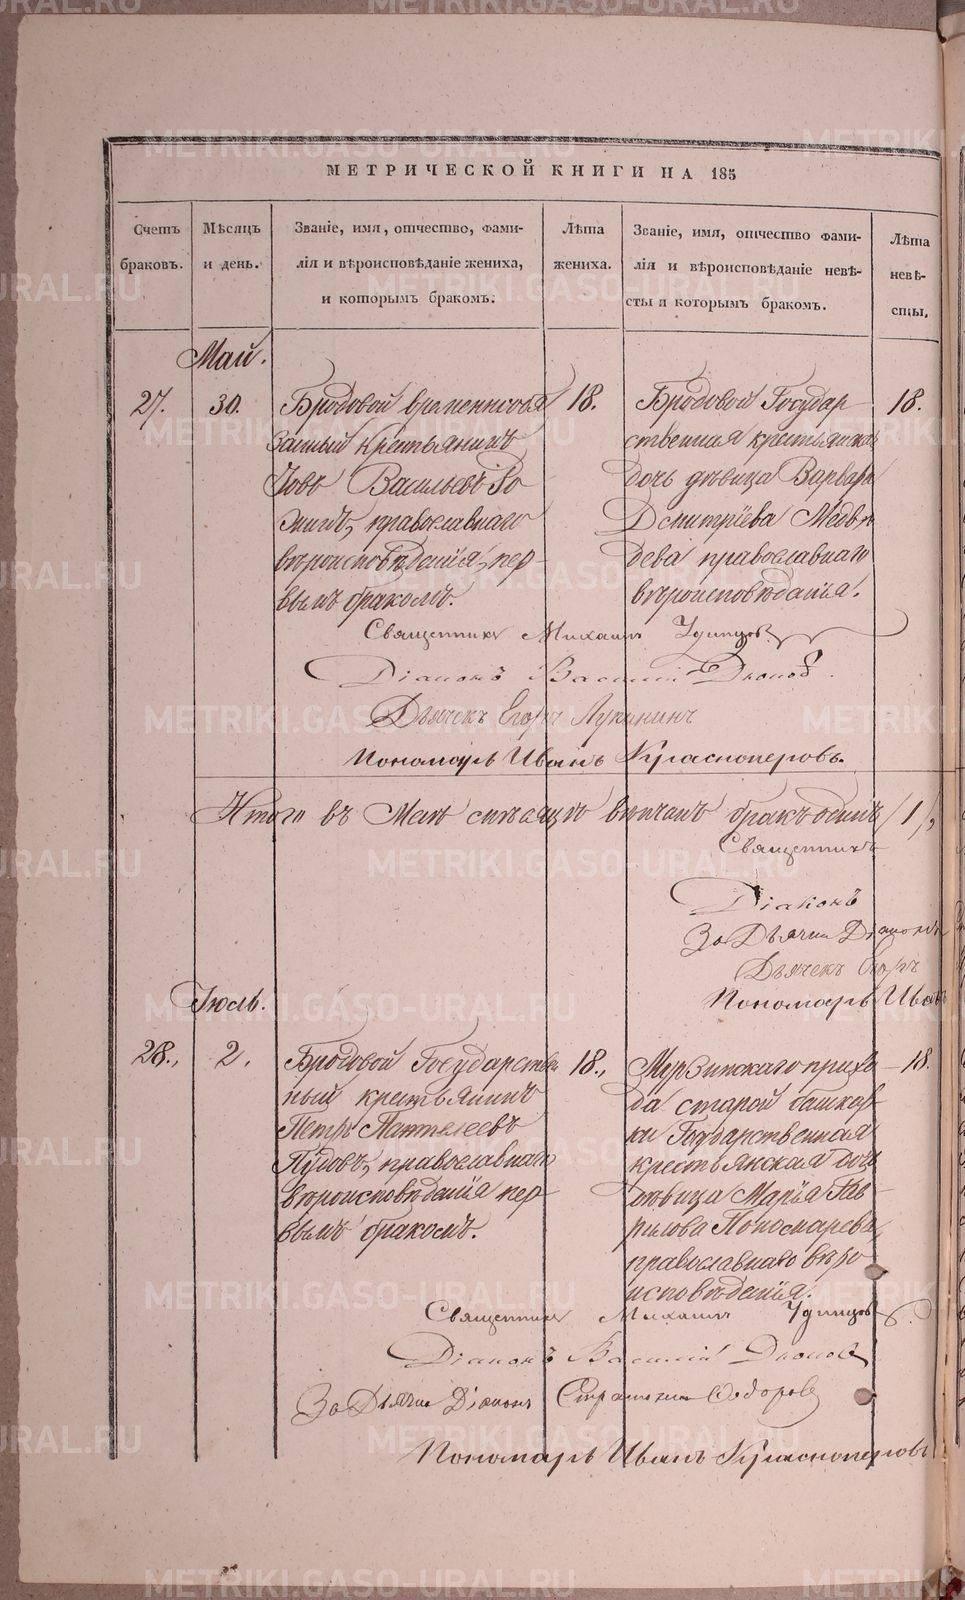 МЕТРИЧЕСКОЙ КНИГИ НА 185
Счетъ браковъ.
Мѣсяцъ и день.
Званіе, имя, отчество, фами-
лія и вѣроисповѣданіе жениха,
и которымъ бракомъ.
Лѣта жениха.
Званіе, имя, отчество фами-
лія и вѣроисповѣданіе невѣ-
сты и которымъ бракомъ.
Лѣта невѣ-
сты.
Май.
27.
30.
Бродовой временнообя
занный крестьянинъ
Іовъ Васильевъ
православнаго
вѣроисповѣданія, пер-
вымъ бракомъ.
18.
Бродовой Государ
ственная крестьянская
дочь дѣвица Варвара
Дмитріева Медвѣ
дева православнаго
вѣроисповѣданія.
18.
Священникъ Михаилъ Удинцовъ
Діаконъ Василій
Дьячекъ Егоръ Лукининъ
Пономарь Иванъ Красноперовъ.
Итого въ Маѣ мѣсяцѣ вѣнчанъ бракъ одинъ (1)
Священникъ
Діаконъ
За Дьячка Діаконъ
Дьячекъ Егоръ
Пономарь Иванъ
Іюль.
28.
2.
Бродовой Государствен
ный крестьянинъ
Петръ Пантелеевъ
Пудовъ, православнаго
вѣроисповѣданія пер
вымъ бракомъ.
18.
Мурзинскаго прихо
да старой башкар
ки Государственная
крестьянская дочь
дѣвица Марія Гав-
рилова Пономарева,
православнаго вѣро
исповѣданія.
18.
Священникъ Михаилъ Удинцовъ
Діаконъ Василій
За Дьячка Діаконъ Ѳедоровъ
Пономарь Иванъ Красноперовъ
METRIKI.GASO-URAL.RU